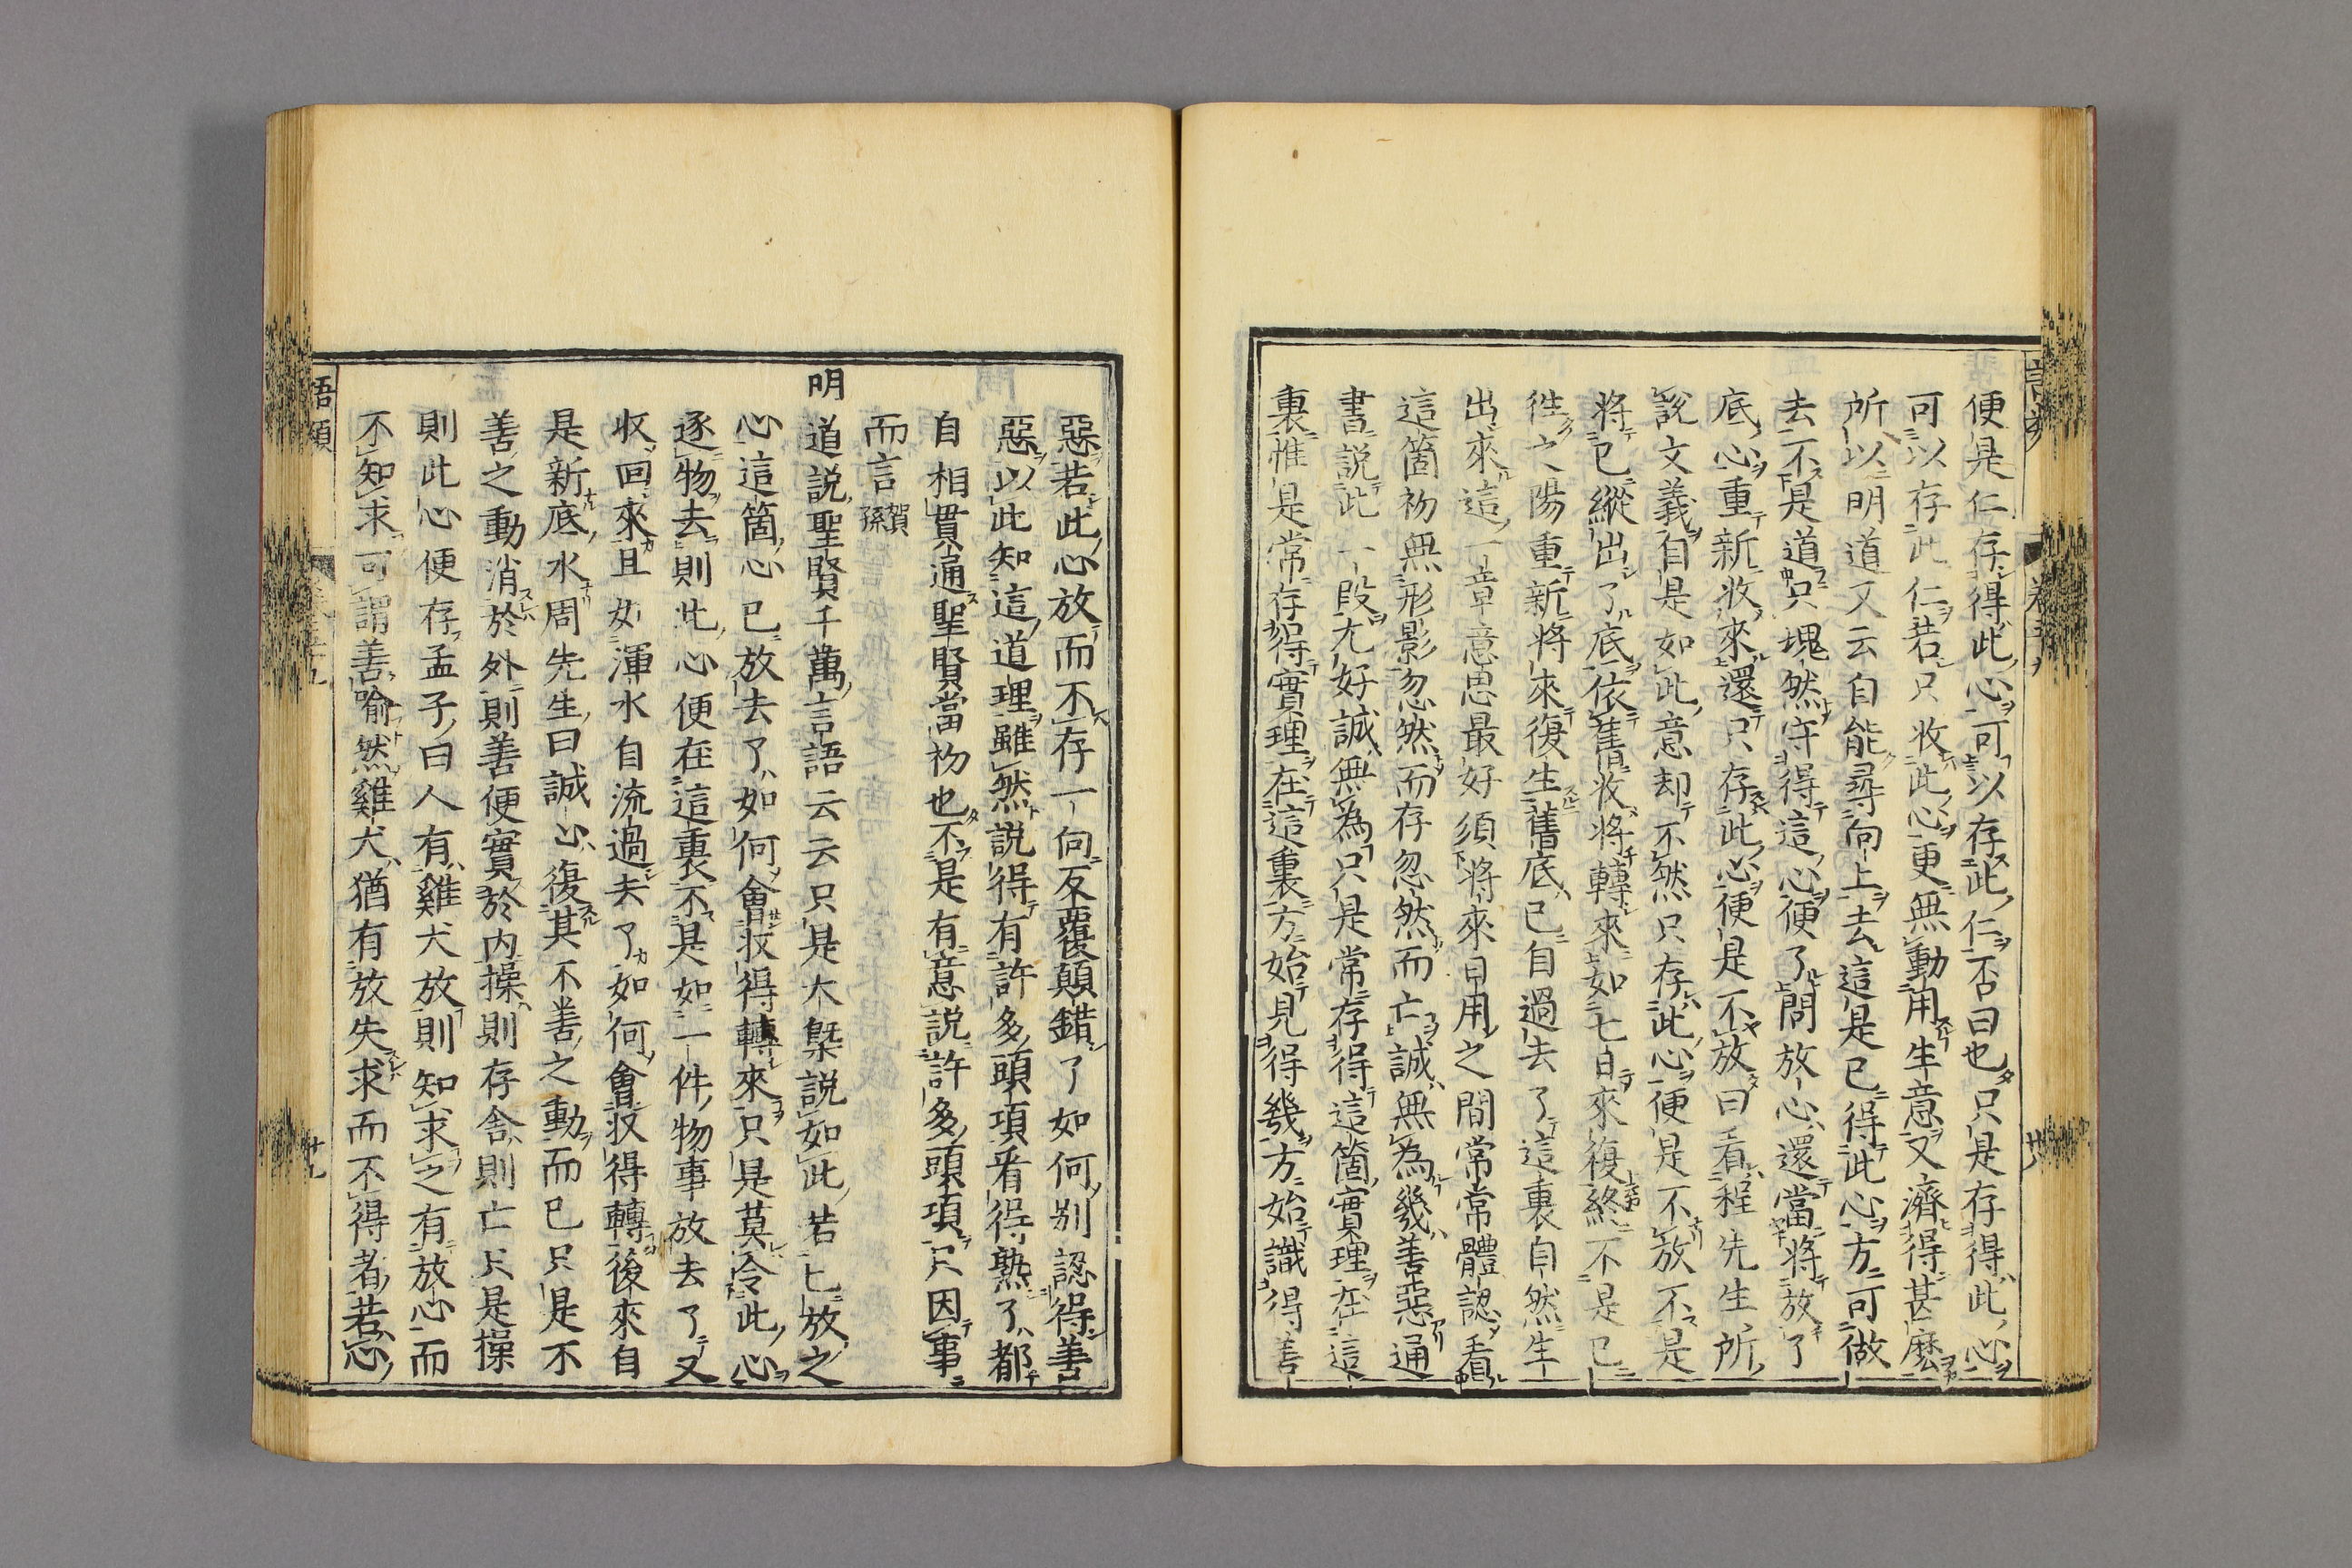 便是仁存得此心可以存此仁否曰也只是存得此心
可以存此仁若只收此心更無動用生意又濟得甚麼
所以明道又云自能尋向上去這是已得此心方可做
去不是道只塊然守得這心便了問放心還當將放了
底心重新收來還只存此心便是不放曰看程先生所
說文義自是如此意却不然只存此心便是不放不是
將已縱出了底依舊收將轉來如七日來復終不是已
徃之陽重新將來復生舊底已自過去了這裏自然生
出來這一章意思最好須將來日用之間常常體認看
這箇初無形影忽然而存忽然而亡誠無為幾善惡通
書説此一段尤好誠無為只是常存得這箇實理在這
裏惟是常存得實理在這裏方始見得幾方始識得善
惡若此心放而不存一向反覆顛錯了如何別認得善
惡以此知這道理雖然説得有許多頭項看得熟了都
自相貫通聖賢當初也不是有意説許多頭項只因事
而言賀孫
明道説聖賢千萬言語云云只是大槩説如此若已放之
心這箇心已放去了如何會收得轉來只是莫令此心
逐物去則此心便在這裏不是如一件物事放去了又
收回來且如渾水自流過去了如何會收得轉後來自
是新底水周先生曰誠心復其不善之動而已只是不
善之動消於外則善便實於内操則存舎則亡只是操
則此心便存孟子曰人有雞犬放則知求之有放心而
不知求可謂善喻然雞犬猶有放失求而不得者若心
語類
廿九